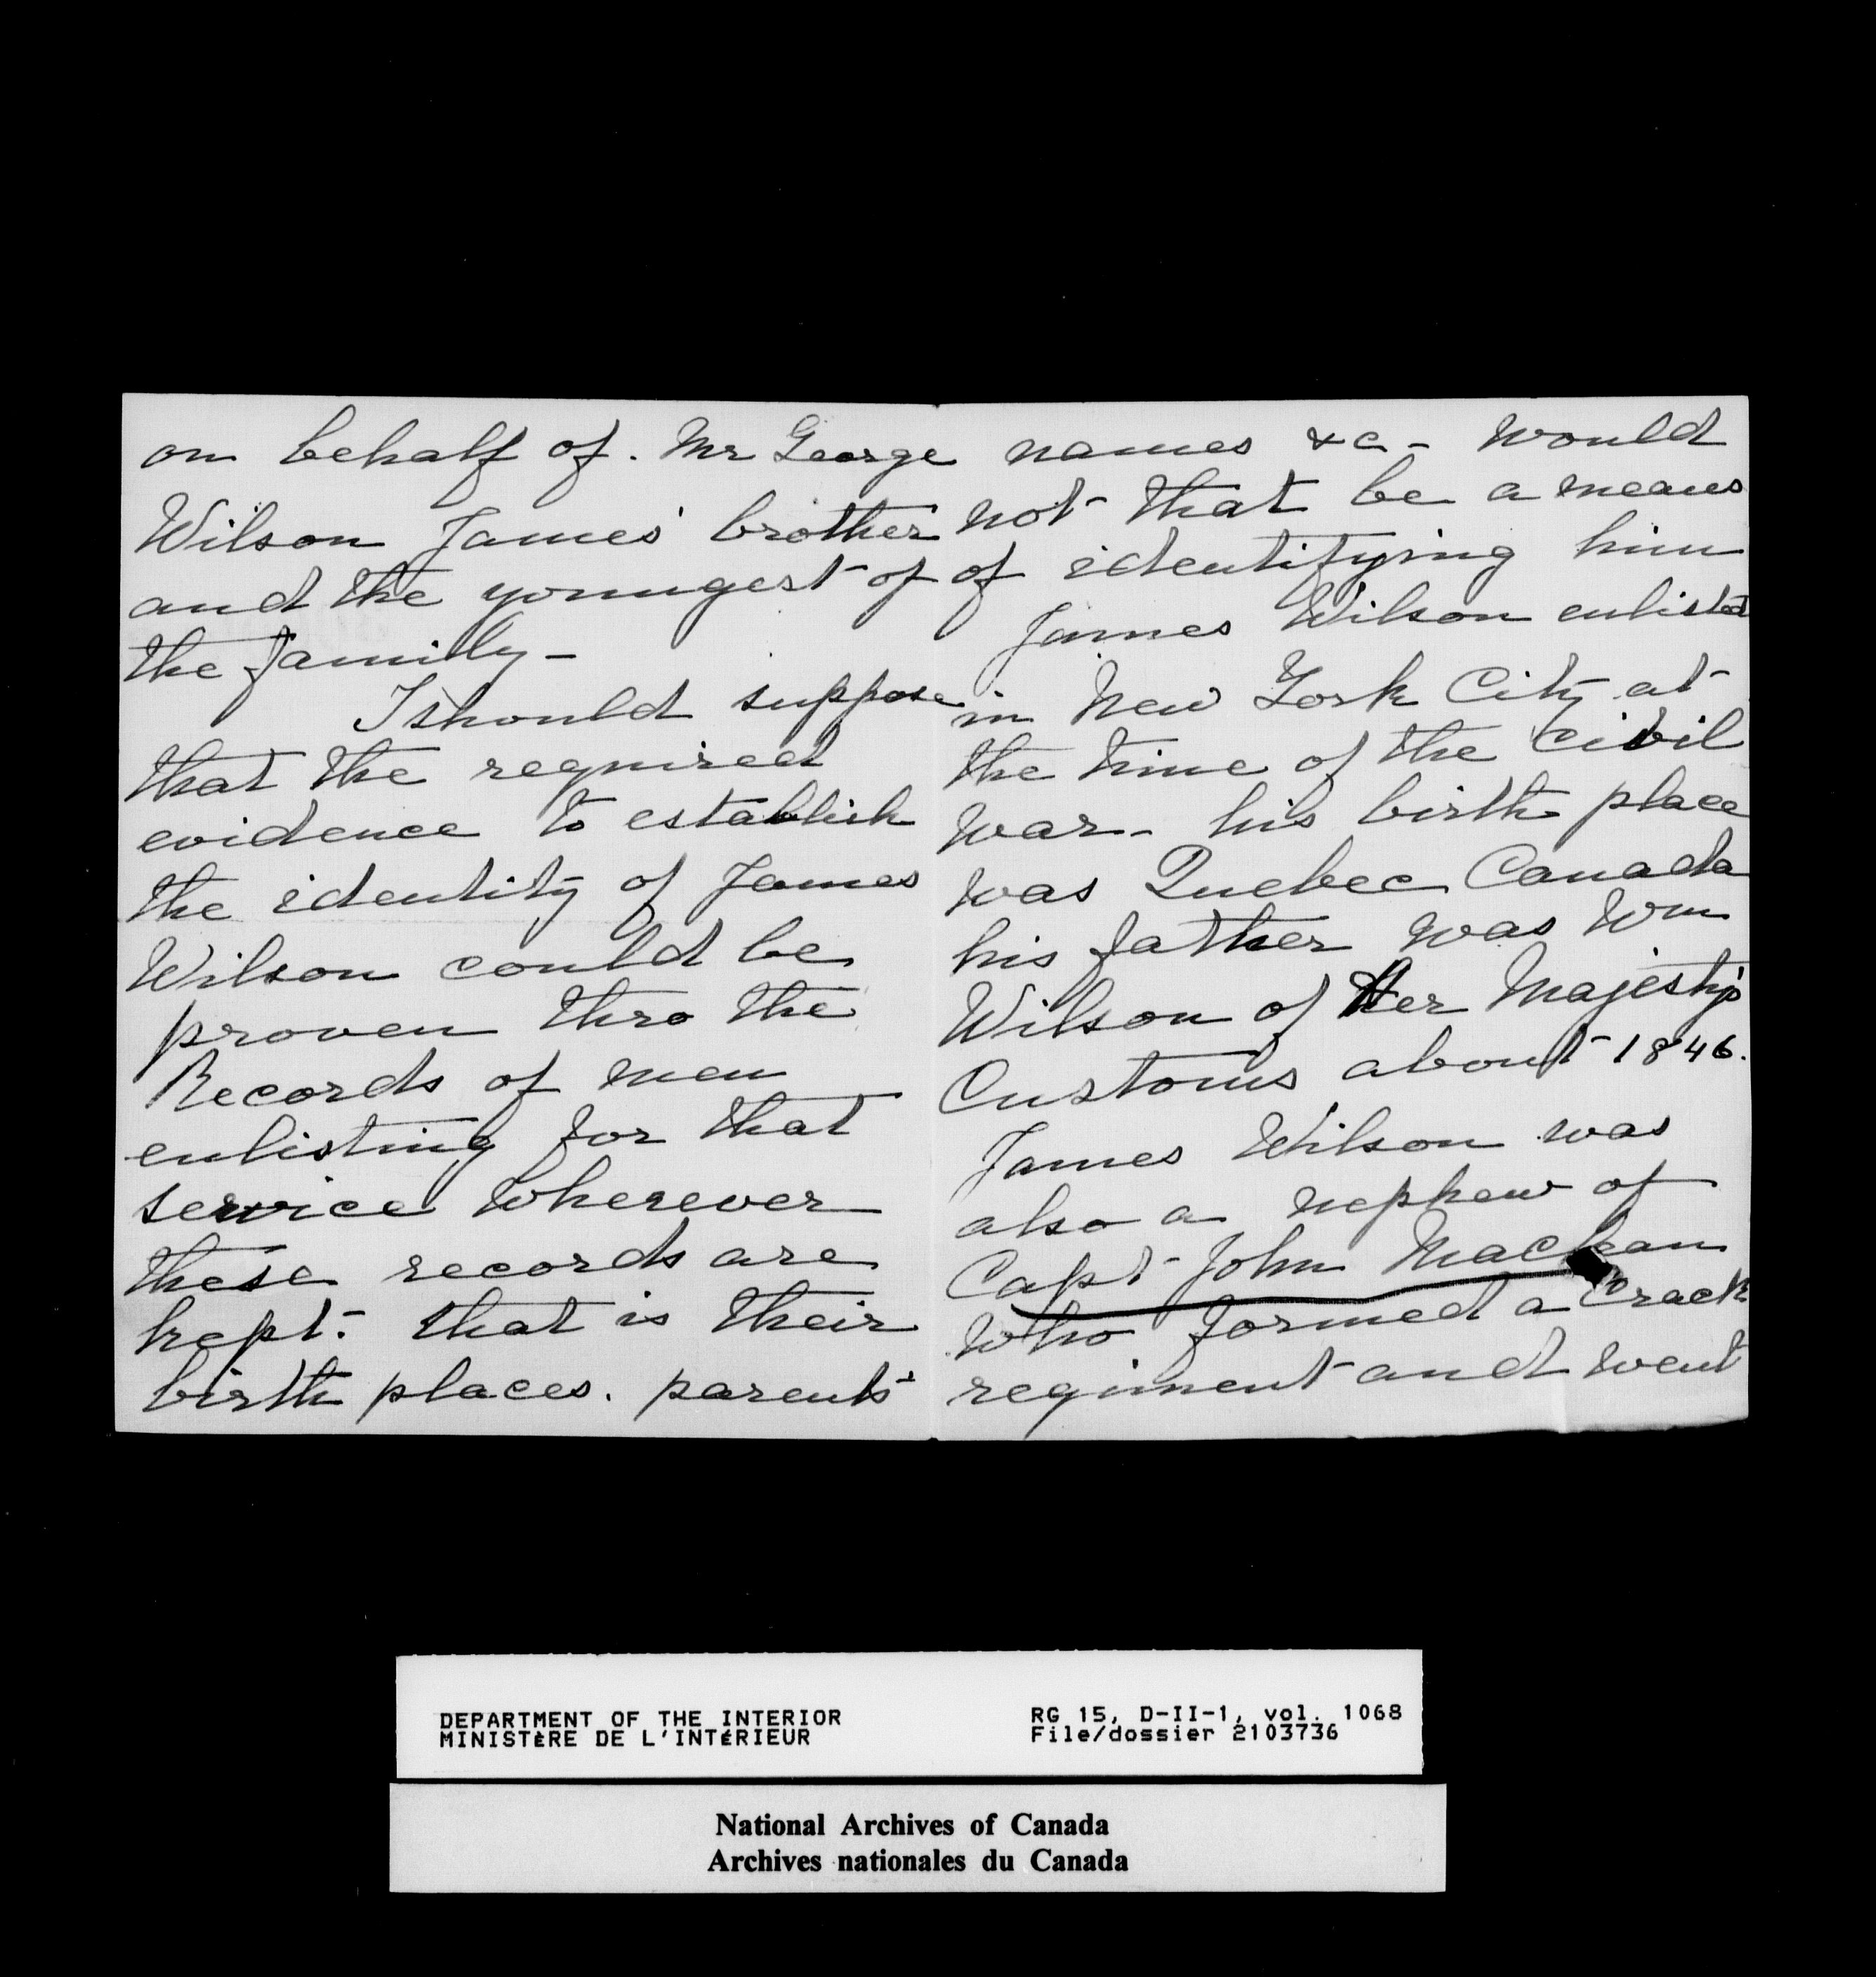 on behalf of. Mr George
Wilson James' brother
and the youngest of
the family -
I should suppose
that the required
evidence to establish
the identity of James
Wilson could be
proven thro the
Records of men
enlisting for that
service wherever
these records are
kept. that is their
birth places. parents'
names &c - would
not that be a means
of identifying him
James Wilson enlisted
in New York City at
the time of the Civil
War - his birth place
was Quebec Canada
his father was Wm
Wilson of Her Majesty's
Customs about 1846.
James Wilson was
also a nephew of
Capt John Maclean
who formed a crack
regiment and went
DEPARTMENT OF THE INTERIOR
MINISTÈRE DE L'INTÉRIEUR
RG 15, D-II-1, vol. 1068
File/dossier 2103736
National Archives of Canada
Archives nationales du Canada